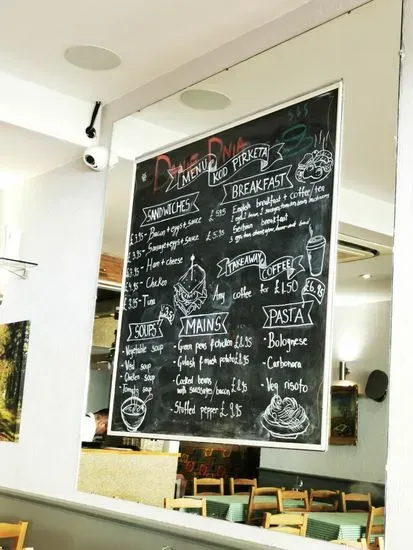 MENU KOD PIRKETA
SANDWICHES
£3.95 - Bacon + egg + sauce
- Sausage + egg + sauce
- Ham + cheese
- Chicken
£3.95 - Tuna
BREAKFAST
English breakfast + coffee/tea
Serbian breakfast
TAKEAWAY COFFEE
Any coffee for £1.50
SOUPS
- Vegetable soup
- Veal soup
- Chicken soup
- Tomato soup
MAINS
- Green peas & chicken £8.95
- Gulash & mash potato £8.95
- Cooked beans
with sausages/bacon
- Stuffed pepper £9.95
PASTA
£6.95
- Bolognese
- Carbonara
- Veg risoto